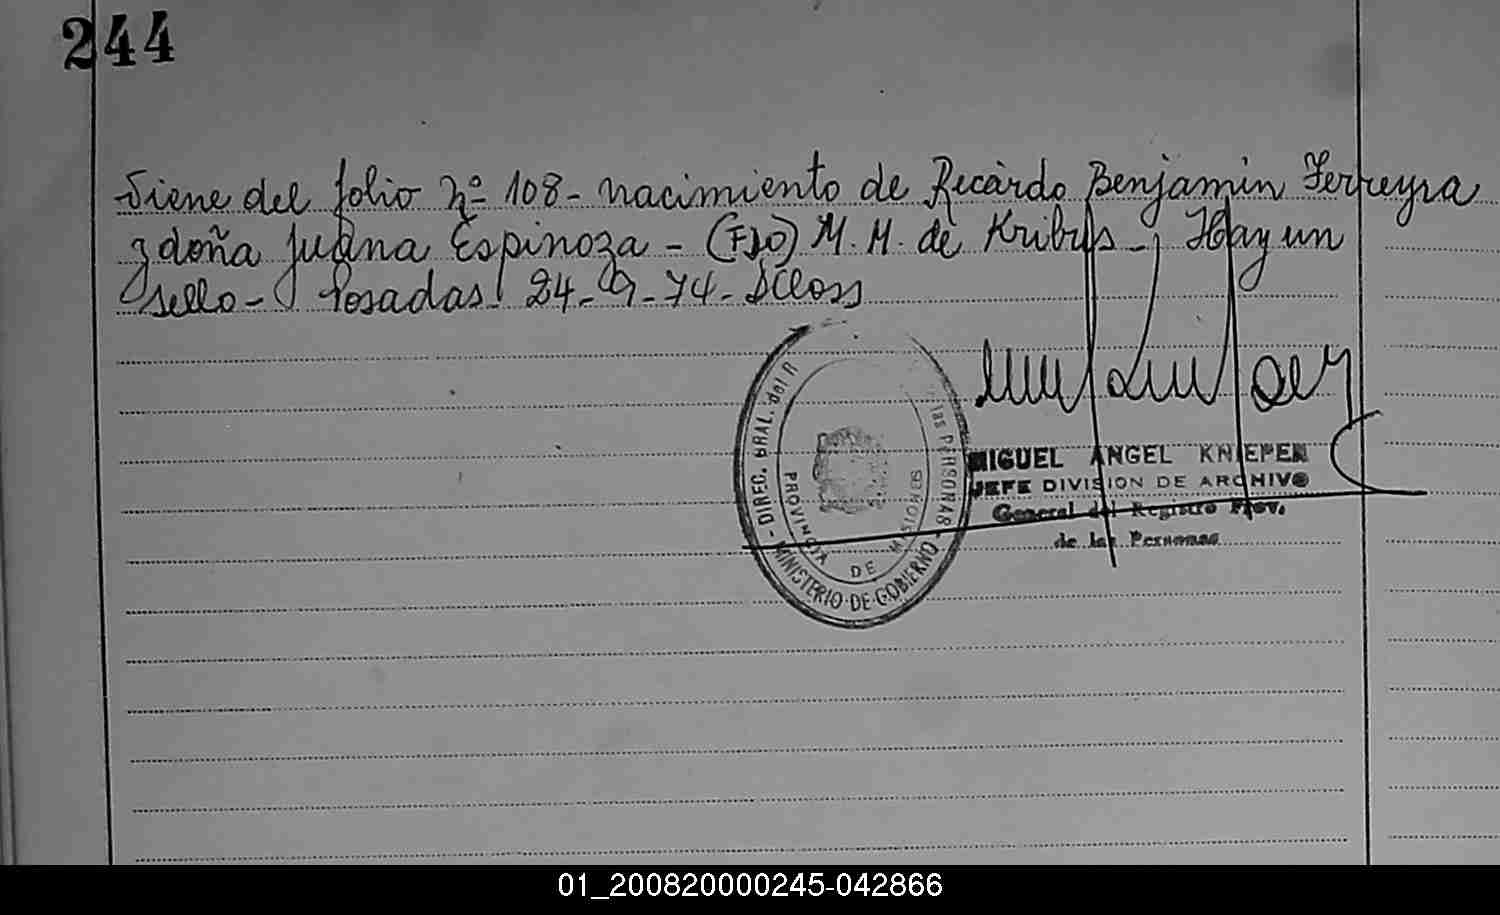 244
Viene del folio Nº 108- nacimiento de Ricardo Benjamin Ferreyra
y doña Juana Espinoza - (FDO) M. H. de Kribus - Hay un
sello - Posadas 24-9-74-
- DIREC. GRAL. del R las PERSONAS -
PROVINCIA DE MISIONES
MINISTERIO DE GOBIERNO
MIGUEL ANGEL KNIEPER
JEFE DIVISION DE ARCHIVO
General del Registro Prov.
de las Personas
01_200820000245-042866